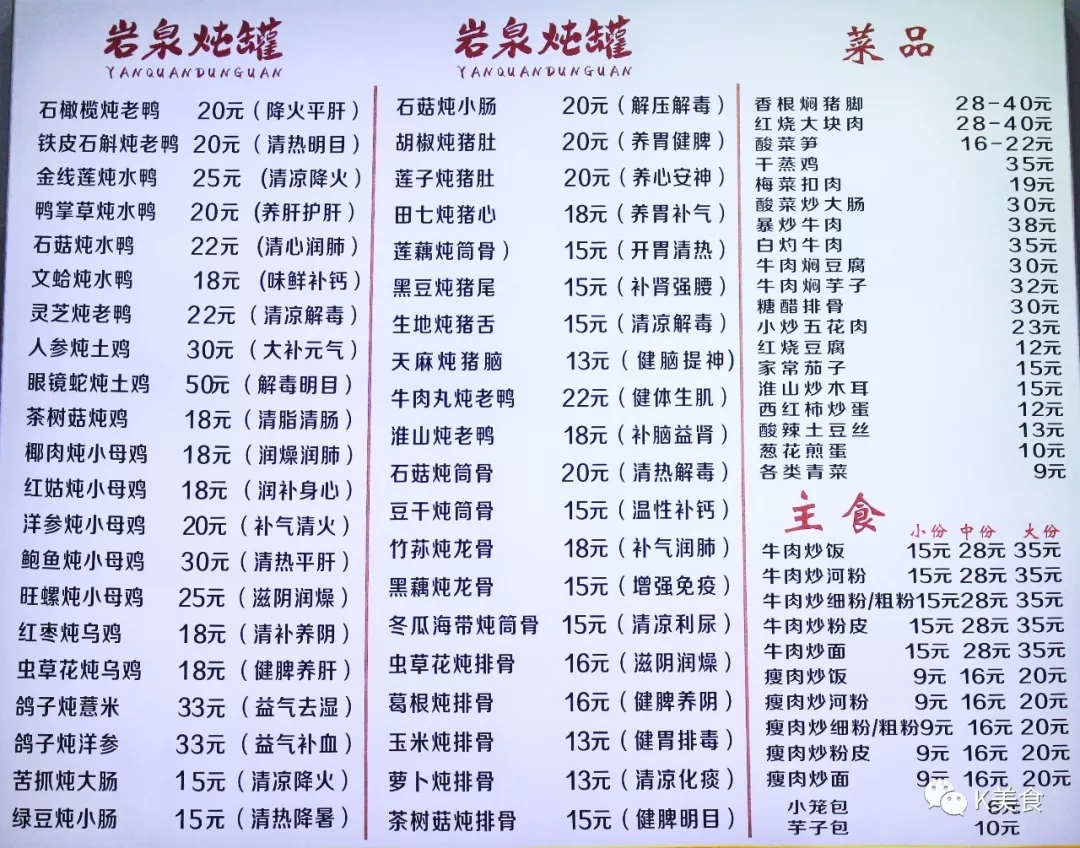 岩泉炖罐
YANQUANDUNGUAN
石橄榄炖老鸭 20元（降火平肝）
铁皮石斛炖老鸭 20元（清热明目）
金线莲炖水鸭 25元（清凉降火）
鸭掌草炖水鸭 20元（养肝护肝）
石菇炖水鸭 22元（清心润肺）
文蛤炖水鸭 18元（味鲜补钙）
灵芝炖老鸭 22元（清凉解毒）
人参炖土鸡 30元（大补元气）
眼镜蛇炖土鸡 50元（解毒明目）
茶树菇炖鸡 18元（清脂清肠）
椰肉炖小母鸡 18元（润燥润肺）
红姑炖小母鸡 18元（润补身心）
洋参炖小母鸡 20元（补气清火）
鲍鱼炖小母鸡 30元（清热平肝）
旺螺炖小母鸡 25元（滋阴润燥）
红枣炖乌鸡 18元（清补养阴）
虫草花炖乌鸡 18元（健脾养肝）
鸽子炖薏米 33元（益气去湿）
鸽子炖洋参 33元（益气补血）
苦抓炖大肠 15元（清凉降火）
绿豆炖小肠 15元（清热降暑）
岩泉炖罐
YANQUANDUNGUAN
石菇炖小肠 20元（解压解毒）
胡椒炖猪肚 20元（养胃健脾）
莲子炖猪肚 20元（养心安神）
田七炖猪心 18元（养胃补气）
莲藕炖筒骨） 15元（开胃清热）
黑豆炖猪尾 15元（补肾强腰）
生地炖猪舌 15元（清凉解毒）
天麻炖猪脑 13元（健脑提神)
牛肉丸炖老鸭 22元（健体生肌）
淮山炖老鸭 18元（补脑益肾）
石菇炖筒骨 20元（清热解毒）
豆干炖筒骨 15元（温性补钙）
竹荪炖龙骨 18元（补气润肺）
黑藕炖龙骨 15元（增强免疫）
冬瓜海带炖筒骨 15元（清凉利尿）
虫草花炖排骨 16元（滋阴润燥）
葛根炖排骨 16元（健脾养阴）
玉米炖排骨 13元（健胃排毒）
萝卜炖排骨 13元（清凉化痰）
茶树菇炖排骨 15元（健脾明目）
菜品
香根焖猪脚 28-40元
红烧大块肉 28-40元
酸菜笋 16-22元
干蒸鸡 35元
梅菜扣肉 19元
酸菜炒大肠 30元
暴炒牛肉 38元
白灼牛肉 35元
牛肉焖豆腐 30元
牛肉焖芋子 32元
糖醋排骨 30元
小炒五花肉 23元
红烧豆腐 12元
家常茄子 15元
淮山炒木耳 15元
西红柿炒蛋 12元
酸辣土豆丝 13元
葱花煎蛋 10元
各类青菜 9元
主食
小份 中份 大份
牛肉炒饭 15元 28元 35元
牛肉炒河粉 15元 28元 35元
牛肉炒细粉/粗粉 15元 28元 35元
牛肉炒粉皮 15元 28元 35元
牛肉炒面 15元 28元 35元
瘦肉炒饭 9元 16元 20元
瘦肉炒河粉 9元 16元 20元
瘦肉炒细粉/粗粉 9元 16元 20元
瘦肉炒粉皮 9元 16元 20元
瘦肉炒面 9元 16元 20元
小笼包 6元
芋子包 10元
K美食